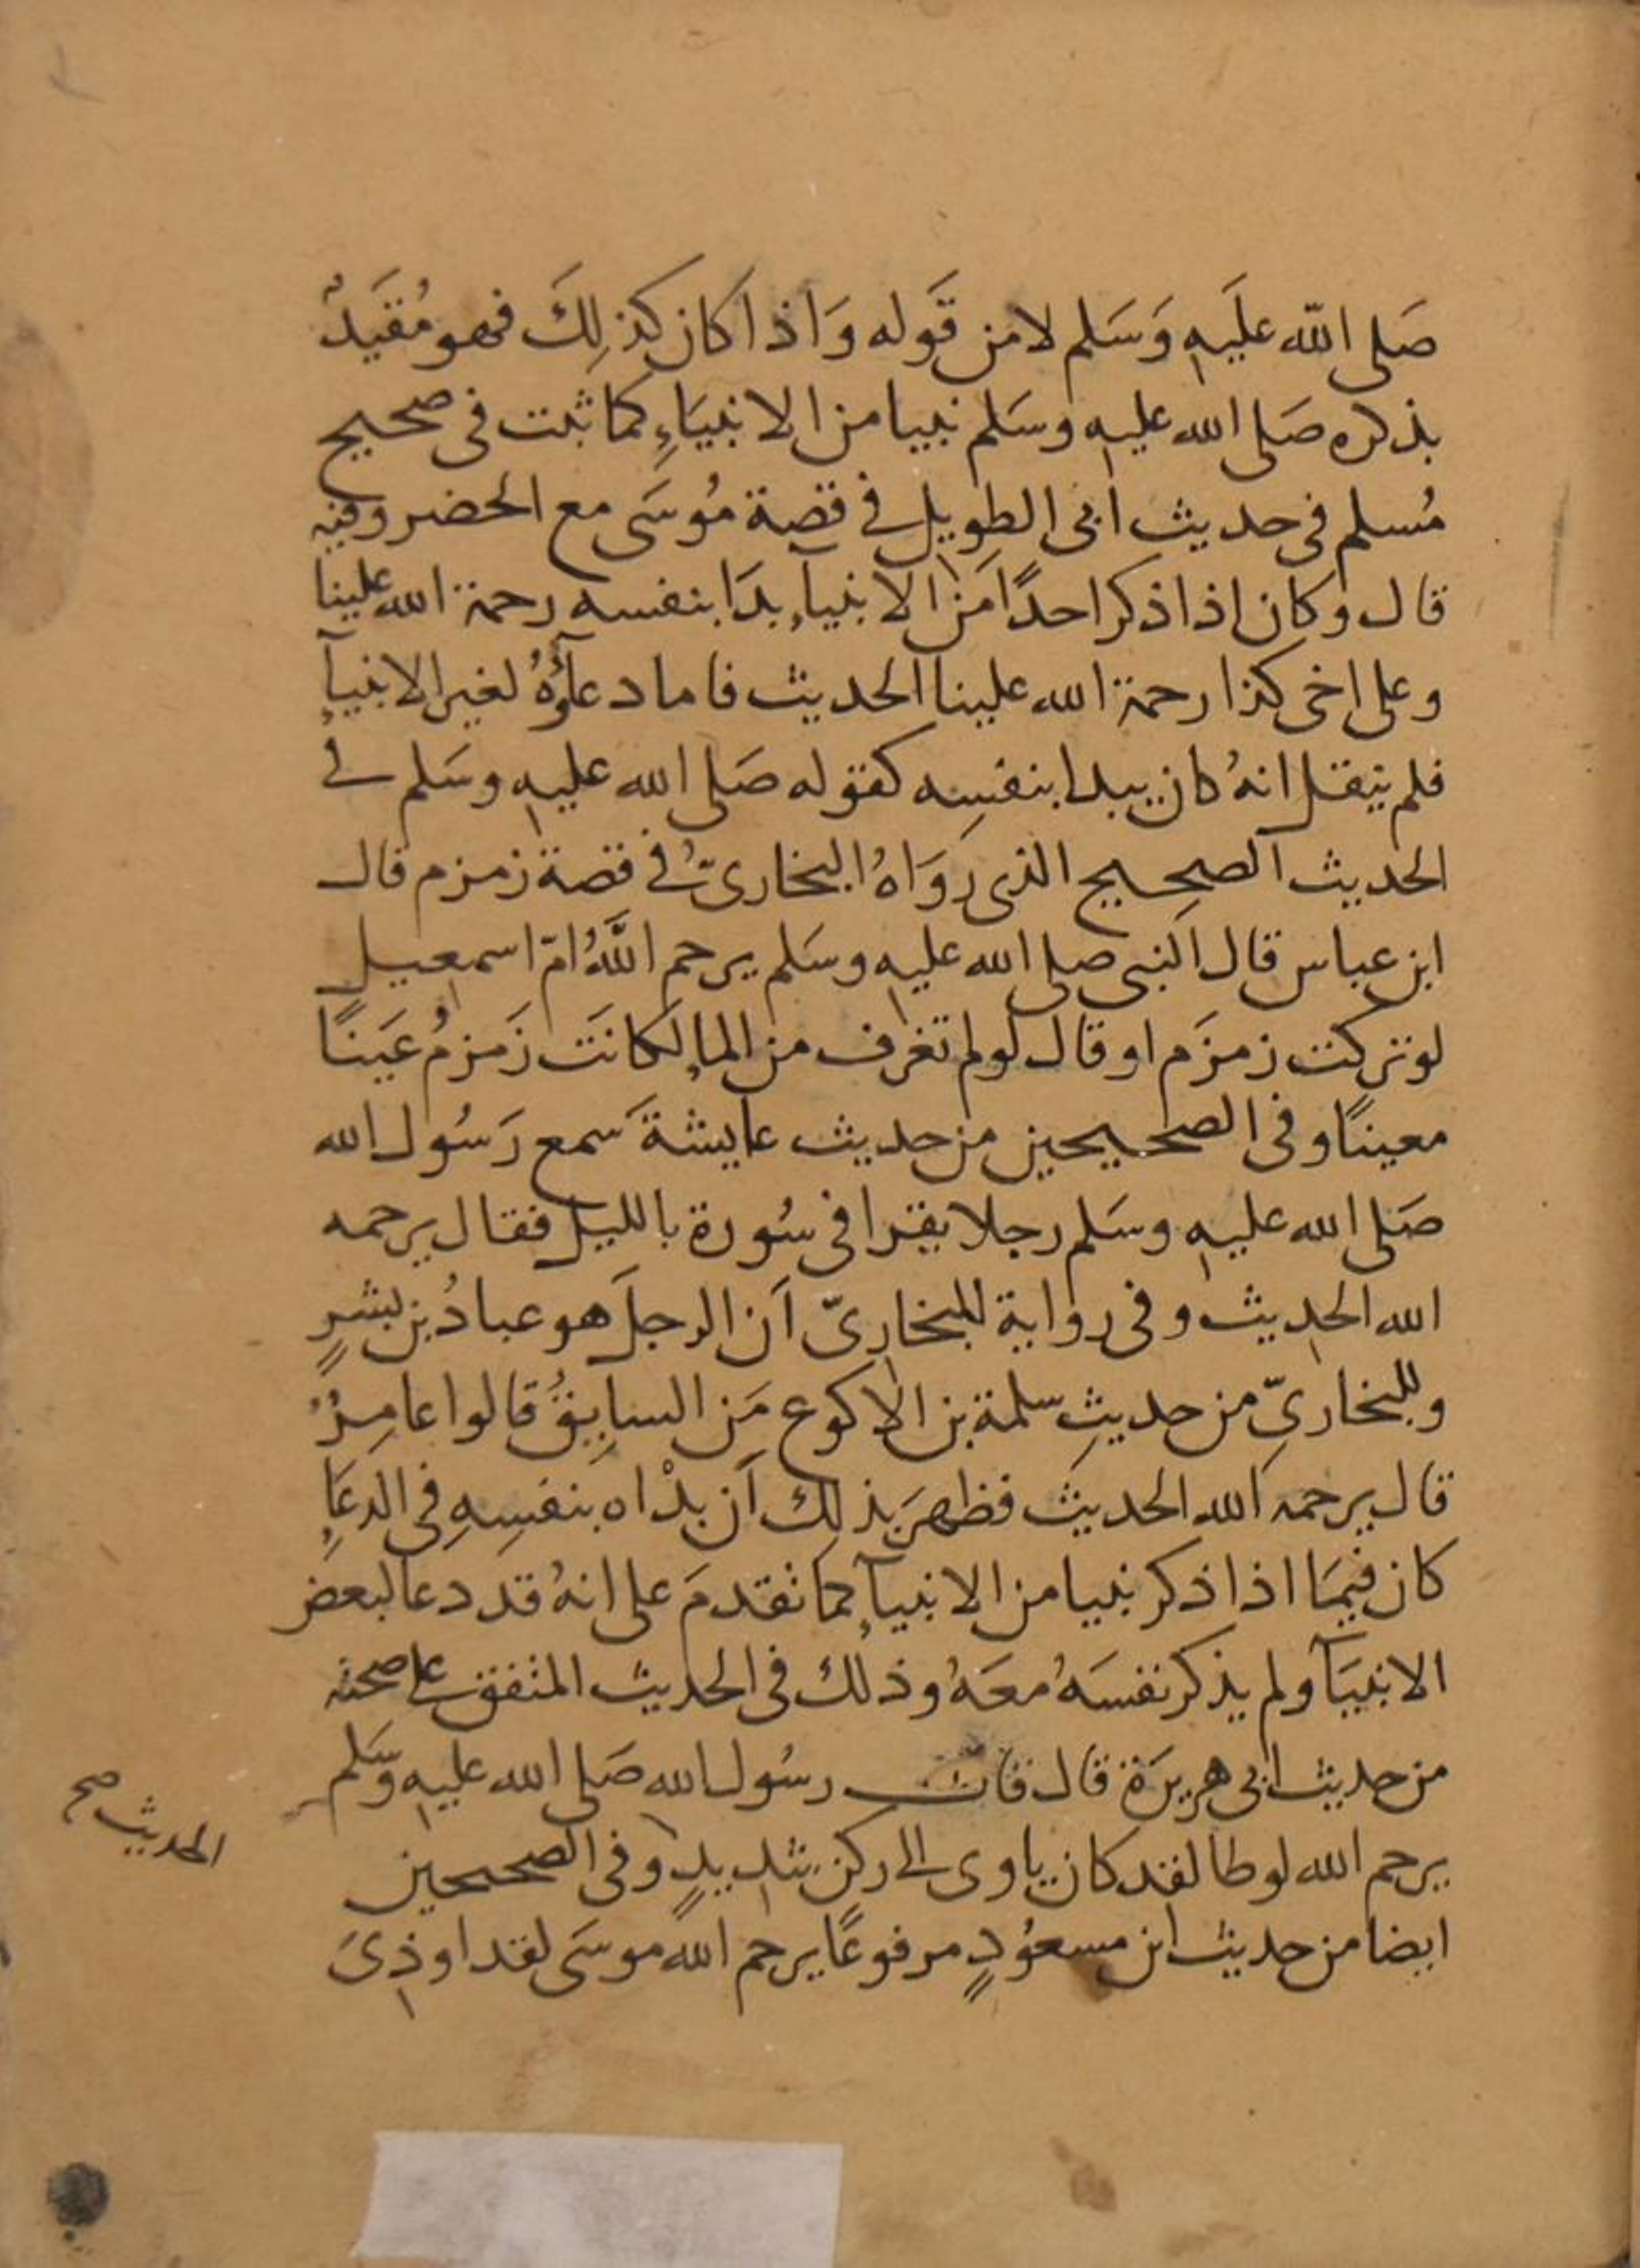 صَلى الله عليَه وَسَلم لا من قَوله وَاذا كان كذلِكَ فهو مُقيَدٌ
بذكره صَلى الله عليه وسَلم نبيا من الانبيَاءِ كما ثبت فى صحيح
مُسلم فى حديث ابى الطويل فى قصة مُوسَى مع الخضر وفيه
قال وكان اذا ذكر احدًا مَن الانبيآءِ بدَا بنفسه رحمة الله علينا
وعلى اخى كذا رحمة الله علينا الحديث فاما دعآؤهُ لغير الانبيآءِ
فلم ينقل انهُ كان يبدا بنفسِه كقوله صَلى الله عليه وسَلم فى
الحديث الصحِيح الذى رَوَاهُ البخارىّ فى قصة زمزم قال
ابن عباس قال النبى صلى الله عليه وسَلم يرحم اللَّهُ امّ اسمعيل
لو تركت زمزَم او قال لو لم تغرف من الماءِ لكانَت زَمزمُ عَينًا
معينًا وفى الصحيحين من حديث عايشة سَمع رَسُول الله
صَلى الله عليه وسَلم رجلا يقرا فى سُورة بالليل فقال يرحمه
الله الحديث وفى رواية للبخارىّ اَن الرجلَ هو عبادُ بن بشرٍ
وللبخارىِّ من حديثِ سلمة بن الاكوع مَن السابِقُ قالوا عامِرٌ
قال يرحمه الله الحديث فظهرَ بذلك اَن بدْاه بنفسِهِ فى الدعَاءِ
كان فيمَا اذا ذكر نبيا من الانبيآءِ كما تقدمَ على انهُ قد دعا لبعض
الانبيَآءِ ولم يذكر نفسَهُ معَهُ وذلك فى الحديث المتفق على صحته
من حديث ابى هريرَة قال قال رسُول الله صَلى الله عليه وسَلم
يرحم الله لوطا لقد كان ياوى الى ركن شديدٍ وفى الصحيحين
ايضا من حديث ابن مسعُودٍ مرفوعًا يرحم الله موسَى لقد اوذِىَ
الحديث صح